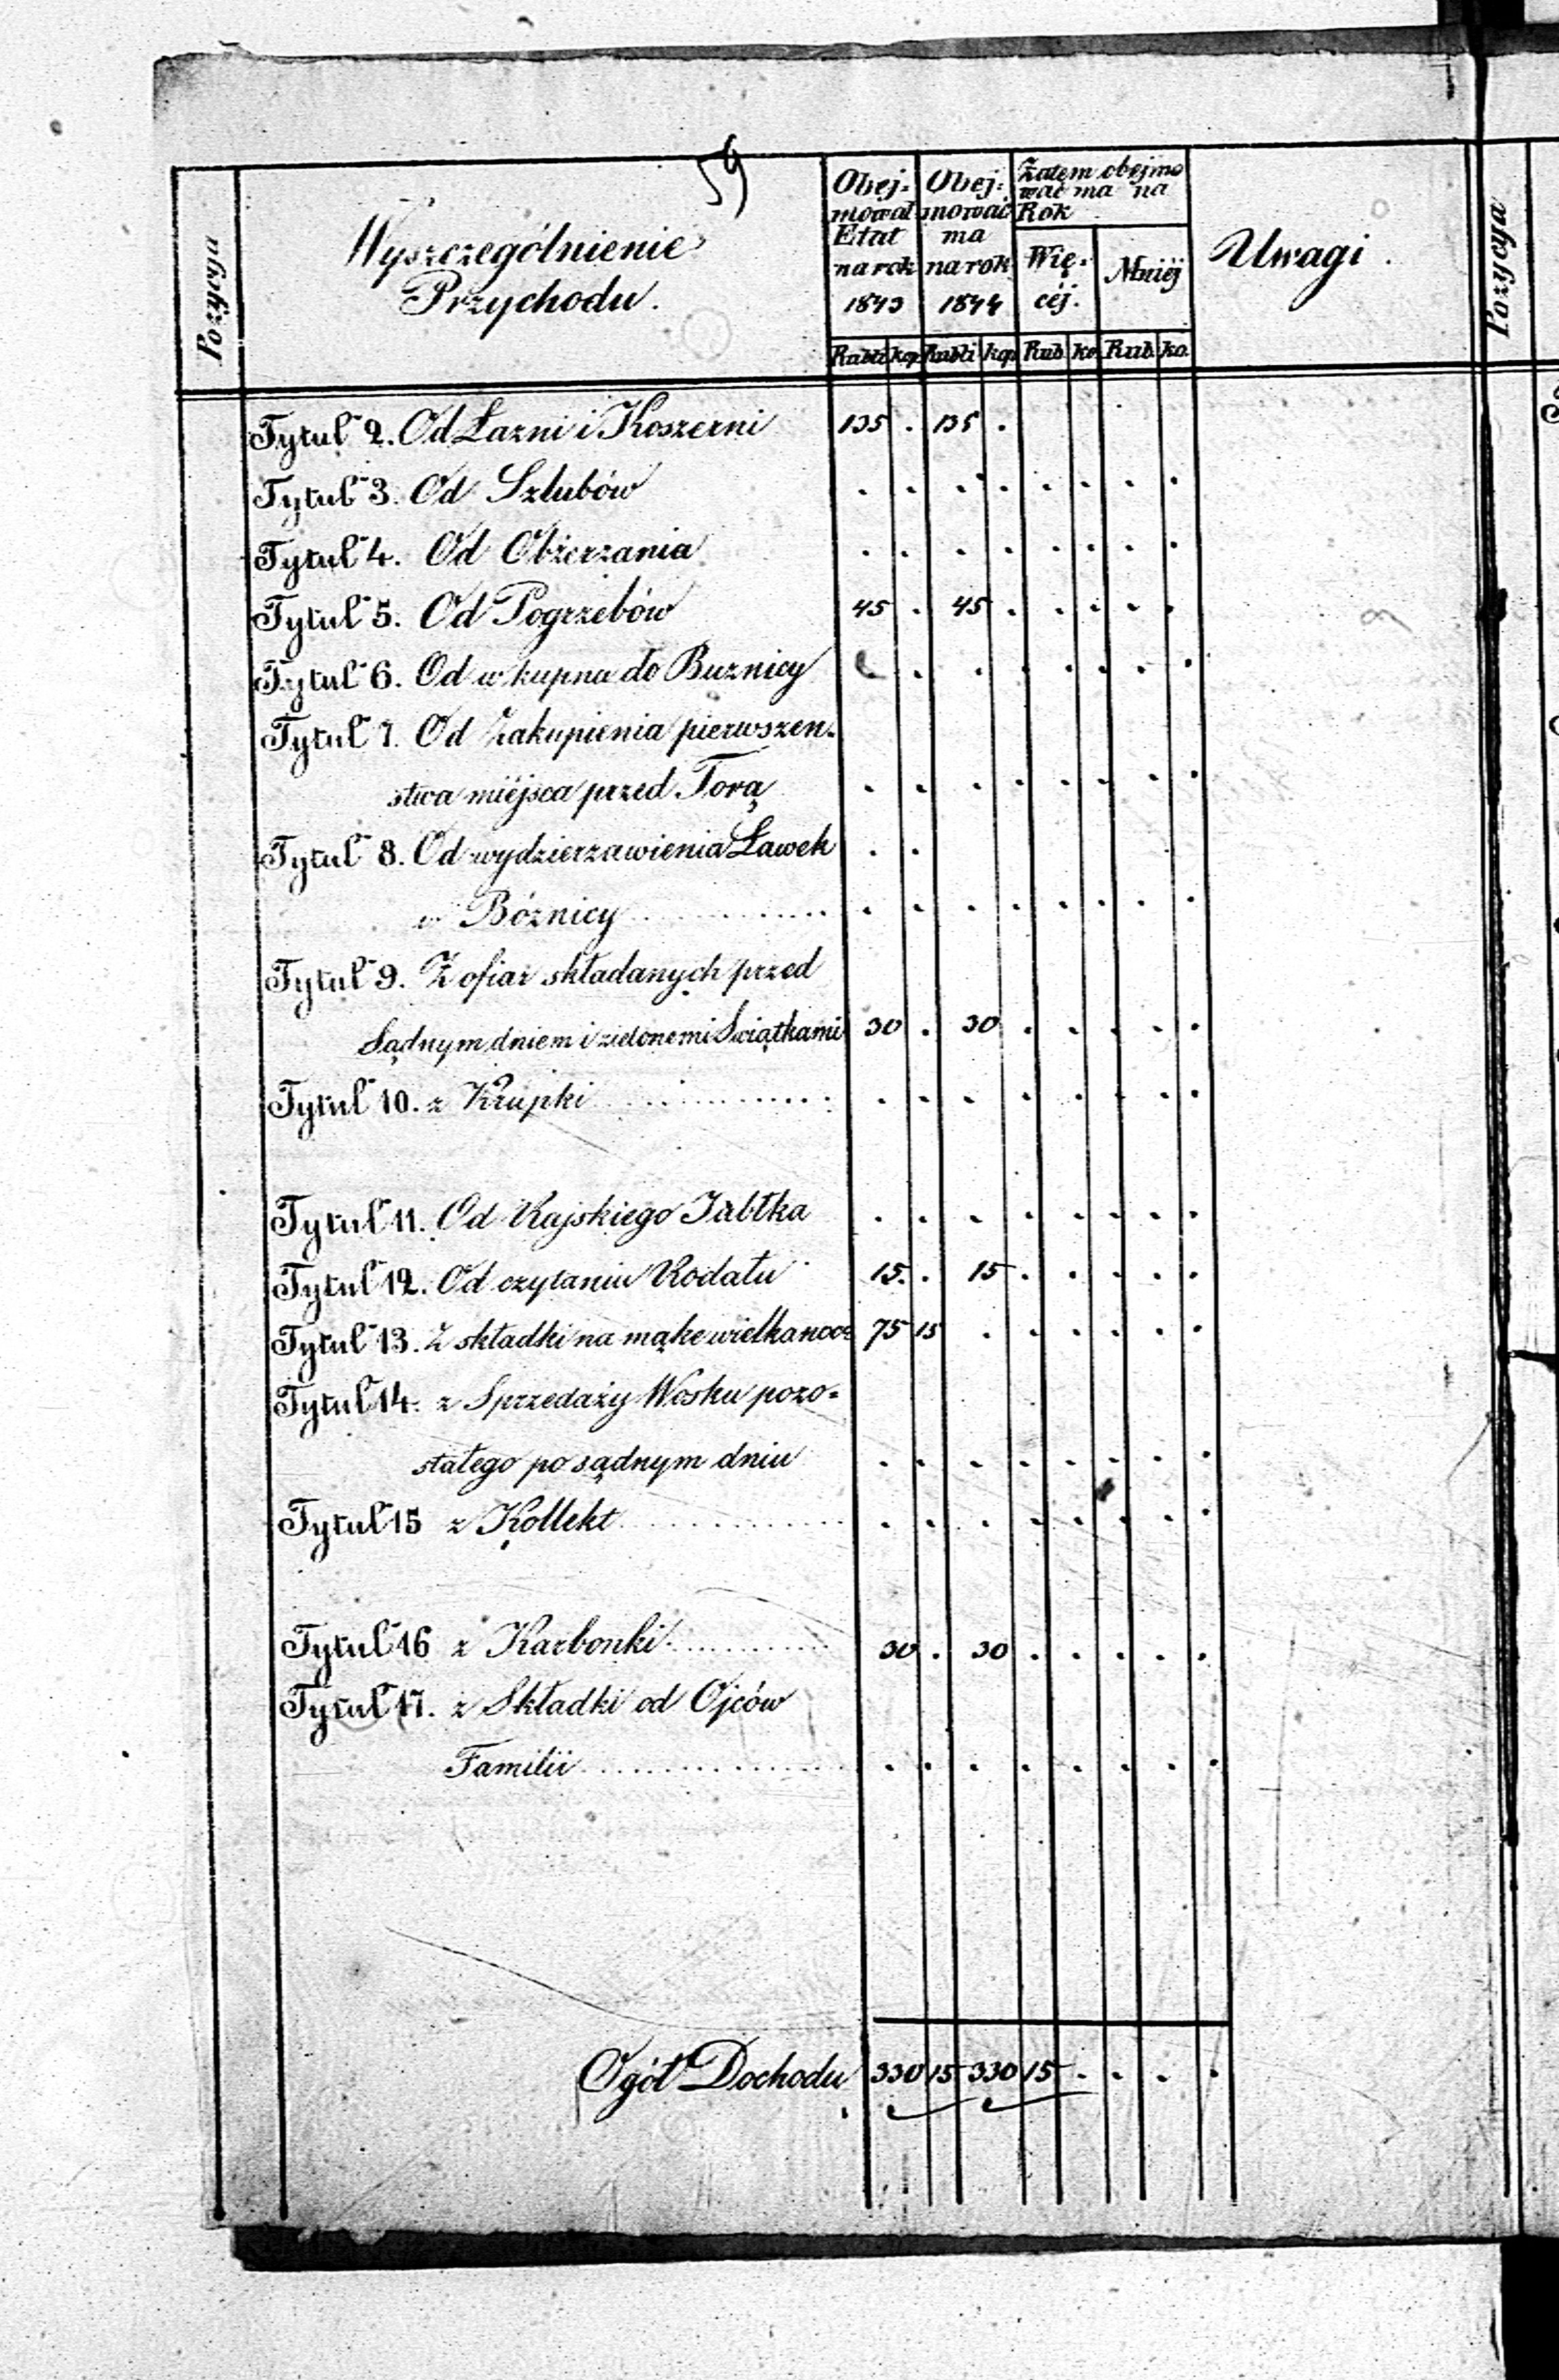 59
Pozycya
Wyszczególnienie
Przychodu.
Obej-
mował
Etat
na rok
1843
Obej-
mować
ma
na rok
1844
Zatem obejmo
wać ma na
Rok
Wię-
céj.
Mniéj
Uwagi.
Pozycya
Rubli kop Rubli kop Rub. ko. Rub. ko.
Tytuł 2. Od Łazni i Koszerni 135 . 135 .
Tytuł 3. Od Szlubów . . . . . . . .
Tytuł 4. Od Obżerzania . . . . . . . .
Tytuł 5. Od Pogrzebów 45 . 45 . . . . .
Tytuł 6. Od wkupna do Buznicy . . . . . . .
Tytuł 7. Od Zakupienia pierwszen-
stwa miéjsca przed Torą . . . . . . . .
Tytuł 8. Od wydzierzawienia Ławek . .
w Bóznicy . . . . . . . .
Tytuł 9. Z ofiar składanych przed
Sądnym dniem i zielonemi Swiątkami 30 . 30 . . . . .
Tytuł 10. z Krupki . . . . . . . .
Tytuł 11. Od Rajskiego Jabłka . . . . . . . .
Tytuł 12. Od czytania Rodału 15. . 15 . . . . .
Tytuł 13. Z składki na mąke wielkanoc 75 15 . . . . . .
Tytuł 14. z Sprzedaży Wosku pozo=
stałego po sądnym dniu . . . . . . . .
Tytuł 15 z Kollekt . . . . . . . .
Tytuł 16 z Karbonki 30 . 30 . . . . .
Tytuł 17. z Składki od Ojców
Familii . . . . . . . .
Ogół Dochodu 330 15 330 15 . . . .